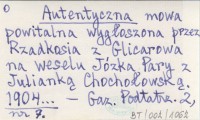 Autentyczna mowa
powitalna wygłoszona przez
Rzadkosia z Glicarowa
na weselu Józka Pary z
Julianką Chochołowską.
1904... — Gaz. Podtatrz. 2,
nr 7.
BT/001/1062